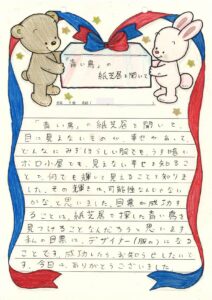 「青い鳥」の
紙芝居を聞いて
「青い鳥」の紙芝居を聞いて、
目に見えないものに幸せがあって
どんなにみすぼらしい服でもうす暗い
ボロ小屋でも見えない幸せを知るこ
と、何でも輝いて見えることを知りま
した。その輝きは、可能性なんじゃない
かなと思いました。目標が成功す
ることは、紙芝居で探した青い鳥を
見つけることなんだろうと思います
私の目標は、デザイナー(服の)になる
ことです。成功したら、お知らせしたいで
す。今日は、ありがとうございました。